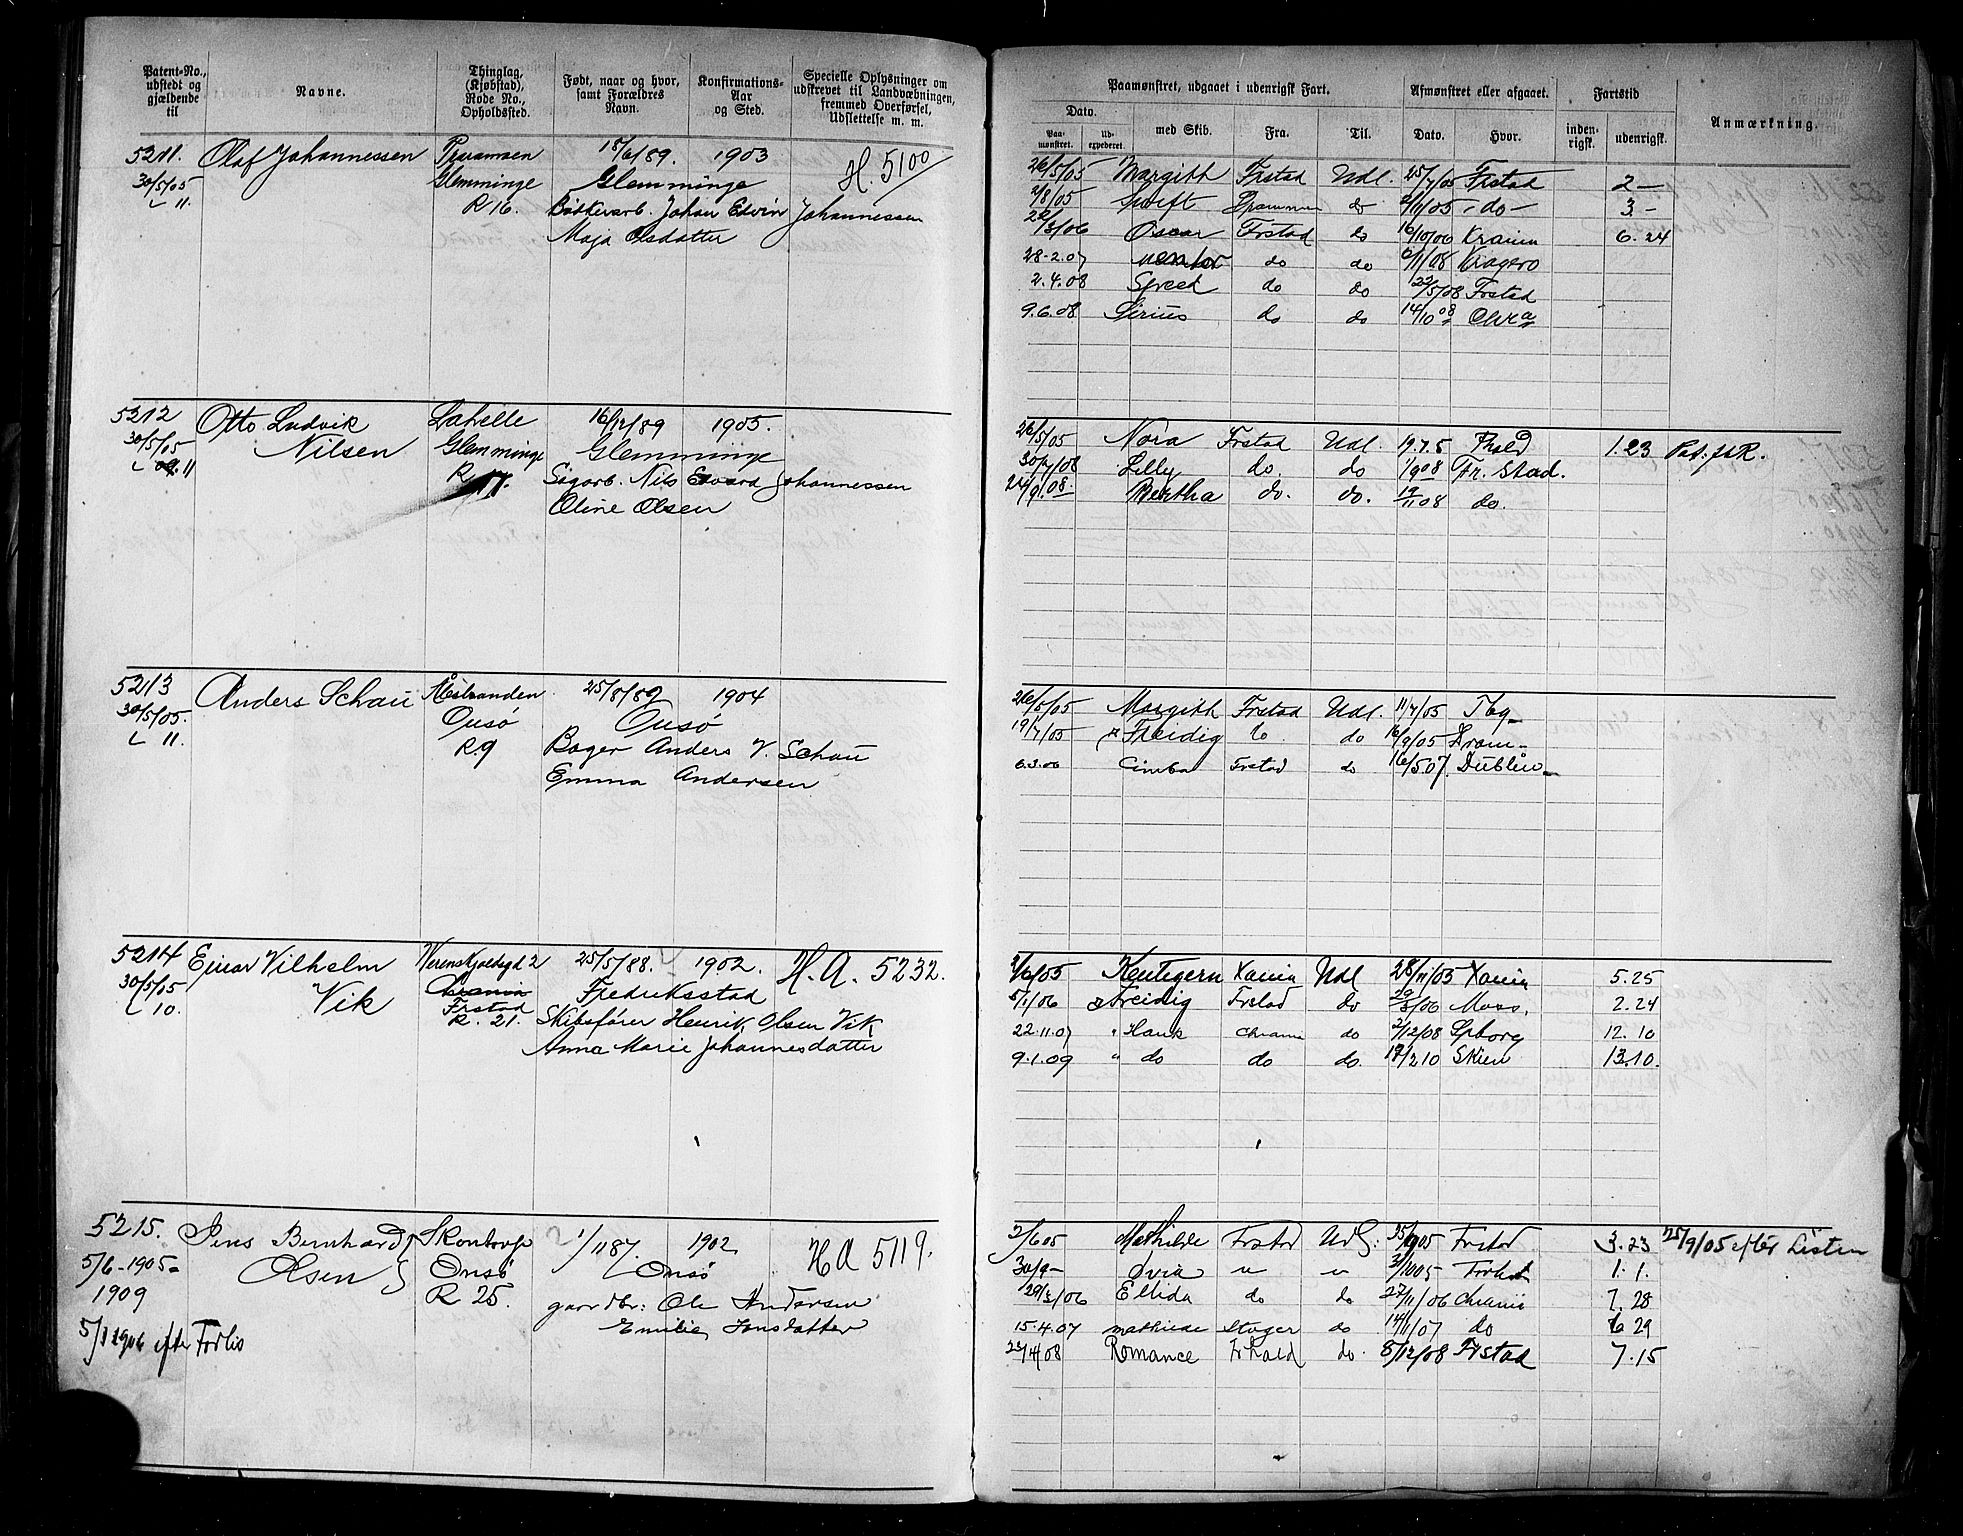 Patent-No., udstedt og gjældende til
Navne.
Thinglag, (Kjøbstad), Rode No., Opholdssted.
Født, naar og hvor, samt Forældres Navn.
Konfirmations-Aar og Sted.
Specielle Oplysninger om udskrevet til Landværbningen, fremmed Overførsel, Udslettelse m. m.
Paamønstret, udgaaet i udenrigsk Fart.
Afmønstret eller afgaaet.
Fartstid
Anmærkning.
Dato.
Paamønstret.
Udexpederet.
med Skib.
Fra.
Til.
Dato.
Hvor.
indenrigsk.
udenrigsk.
5211. Olaf Johannessen 18/6/89. 1903 H. 5100
30/5/05 Glemminge Glemminge
L 11. R 16. Bødkerarb. Johan Edvin Johannessen
Maja Olsdatter
26/5/05 Margith Frstad Udl. 25/7/05 Frstad 2 —
2/8/05 Swift do /11/05 - do - 3. -
/3/06 Oscar Frstad do 16/10/06 Krania 6. 24
28-2.07 Mentor do do /11/08 Kragerø
2.4.08 Speed do do 23/5/08 Frstad
9.6.08 Sirius do do 14/10 08
5212 Otto Ludvik Labelle 16/12/89 1905.
30/5/05 Nilsen Glemminge Glemminge
L 09. 11 R 17. Sagarb. Nils Edvard Johannessen
Oline Olsen
26/5/05 Nora Frstad Udl. 19.7.5 Fhald 1.23
30/7/08 Lilly do. do 1/9 08 Fr. stad.
24/9/08. Bertha do. do. /11 08 do.
5213 Anders Schau Ålestranden 25/8/89 1904
30/5/05. Onsø Onsø
L 11. R.9 Bager Anders V. Schau
Emma Andersen
26/5/05 Margith Frstad Udl. 11/7/05 Tbg
19/7/05 Freidig do. do 16/9/05 Dram-
6.3.06 Cimba Frstad do 16/5 07. Dublin
5214 Einar Vilhelm Werenskjoldsgd 2 25/5/88. 1902. H. A. 5232.
30/5/05 Vik Frstad Fredriksstad
L 10. R. 21. Skibsfører Henrik Olsen Vik
Anna Marie Johannesdatter
/6/05 Kentigern Xania Udl 28/11/05 Xania 5.25
5/1/06 Freidig Frstad do 29/3/06 Moss. 2.24
22.11.07 " Hauk Chrania do 2/12/08 Spborg 12.10
9.1.09 " do do do. /2 10 Skien 13.10.
5215. Jens Bernhard Skontorp 1/1187. 1902 H A 5119.
5/6-1905- Olsen Onsø Onsø
1909 R 25. gaardbr: Ole Andersen
5/1 1906 efter Forlis Emilie Jensdatter
2/6 05 Mathilde Frstad Udl: 25/9 05 Frstad 3. 23 25/9/05 efter Listen
30/9- Svia " " 1. 1.
29/3/06 Ellida do do 27/11/06 Chrania 7. 28
15.4.07 mathilde Stager do 14/11/07 do 6 29
/4/08 Romance Frhald do. 8/12/08 Frstad 7.15